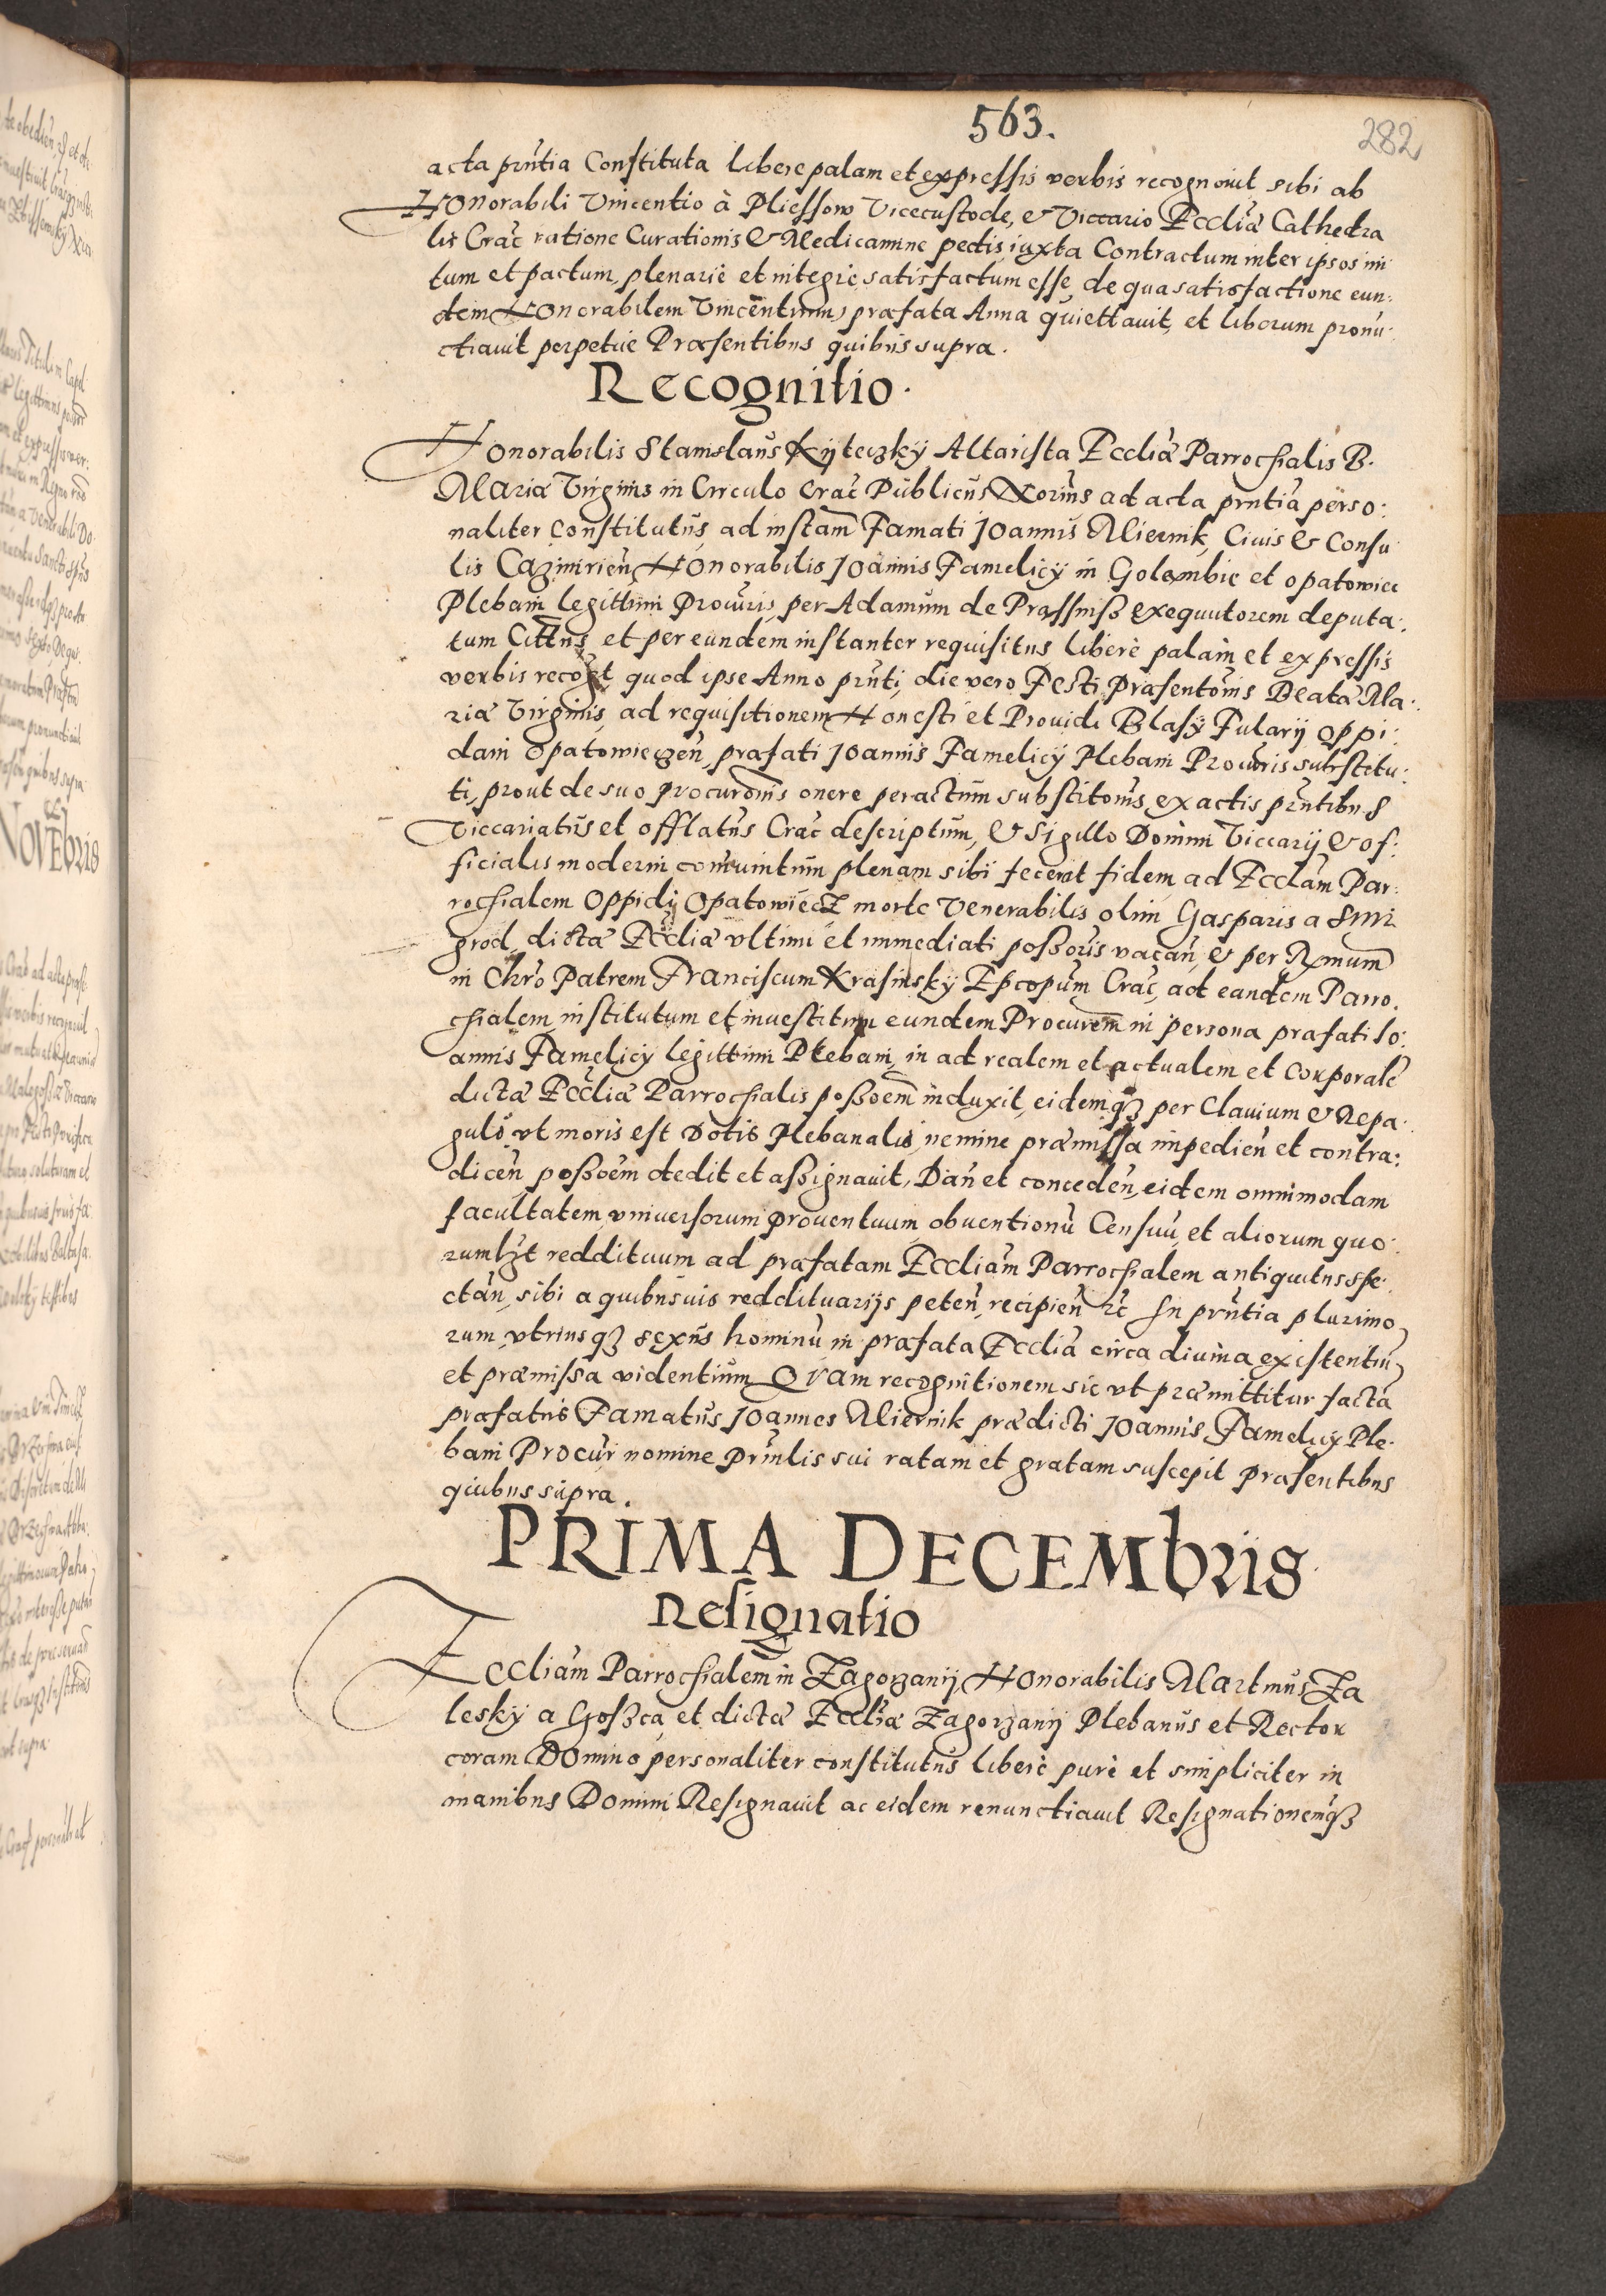 563.
282
acta prńtia Constituta libere palam et expressis verbis recognouit sibi ab
Honorabili Vincentio à Pliessow Vicecustode, & Viccario Ecclia᷎ Cathedra
lis Crac̃ ratione Curationis & Medicamine pedis iuxta Contractum inter ipsos ini
tum et pactum, plenarie et integre satisfactum esse, de qua satisfactione eun:
dem Honorabilem Vincentium, præfata Anna quiettauit, et liberum pronu:
ctiauit perpetue Præsentibus quibus supra.
Recognitio.
Honorabilis Stanislaus Kyteczky Altarista Eccliæ Parrochialis B.
Mariæ Virginis in Circulo Crac̃ Publicus Norius ad acta prñtia perso:
naliter Constitutus, ad instam̃ Famati Joannis Miernik, Ciuis & Consu
lis Cazimirien̄, Honorabilis Joannis Famelicy in Golambie et opatowiec
Plebani legittimi Procuris, per Adamum de Prassnisz exequutorem deputa:
tum Cittus, et per eundem instanter requisitus libere palam et expressis
verbis recogt quod ipse Anno prñti, die vero Festi Præsentonis Beatæ Ma:
riæ Virginis, ad requisitionem Honesti et Prouidi Blasy Fularij oppi:
dani opatowieczen̄, præfati Joannis Famelicy Plebani Procuris substitu:
ti, prout de suo procuronis onere peractum substitonis, ex actis prñtibus
Viccariatus et offlatus Crac̃ descriptum, & Sigillo Domini Viccarij & of:
ficialis moderni communitum plenam sibi fecerat fidem, ad Ecclam Par:
rochialem Oppidj Opatowiecz morte Venerabilis olim Gasparis a Smi
grod, dictæ Eccliæ vltimi et immediati poszoris vacan̄, & per Rmum
in Chro Patrem Franciscum Krasinsky Epcopum Crac̃, ad eandem Parro.
chialem, institutum et inuestitum eundem Procurem in persona præfati Jo:
annis Famelicy legittimi Plebani, in ad realem et actualem et Corporale
dictæ Eccliæ Parrochialis poszoem induxit, eidemqz per Clauium & Repa
guli vt moris est Dotis Plebanalis, nemine præmissa impedien̄ et contra:
dicen̄ poszoem dedit et aszignauit, Dan̄ et conceden̄, eidem omnimodam
facultatem, vniuersorum prouentuum obuentionu Censuu, et aliorum quo:
rumlzt reddituum ad præfatam Eccliam Parrochialem antiquitus spe:
ctan̄, sibi a quibusuis reddituarijs peten̄, recipien̄ &c In prñtia plurimo
rum, vtriusqz sexus hominu in præfata Ecclia circa diuina existentiu
et præmissa videntium, Quam recognitionem sic vt præmittitur facta
præfatus Famatus Joannes Miernik prædicti Joannis Famelicy Ple:
bani Procur̄ nomine Prinlis sui ratam et gratam suscepit Præsentibus
quibus supra.
PRIMA DECEMbris
Resignatio
Eccliam Parrochialem in Zagorzanij Honorabilis Martinus Za
lesky a Goszca et dictæ Eccliæ Zagorzanij Plebanus et Rector
coram Domino personaliter constitutus libere pure et simpliciter in
manibus Domini Resignauit ac eidem renunctiauit Resignationemqz